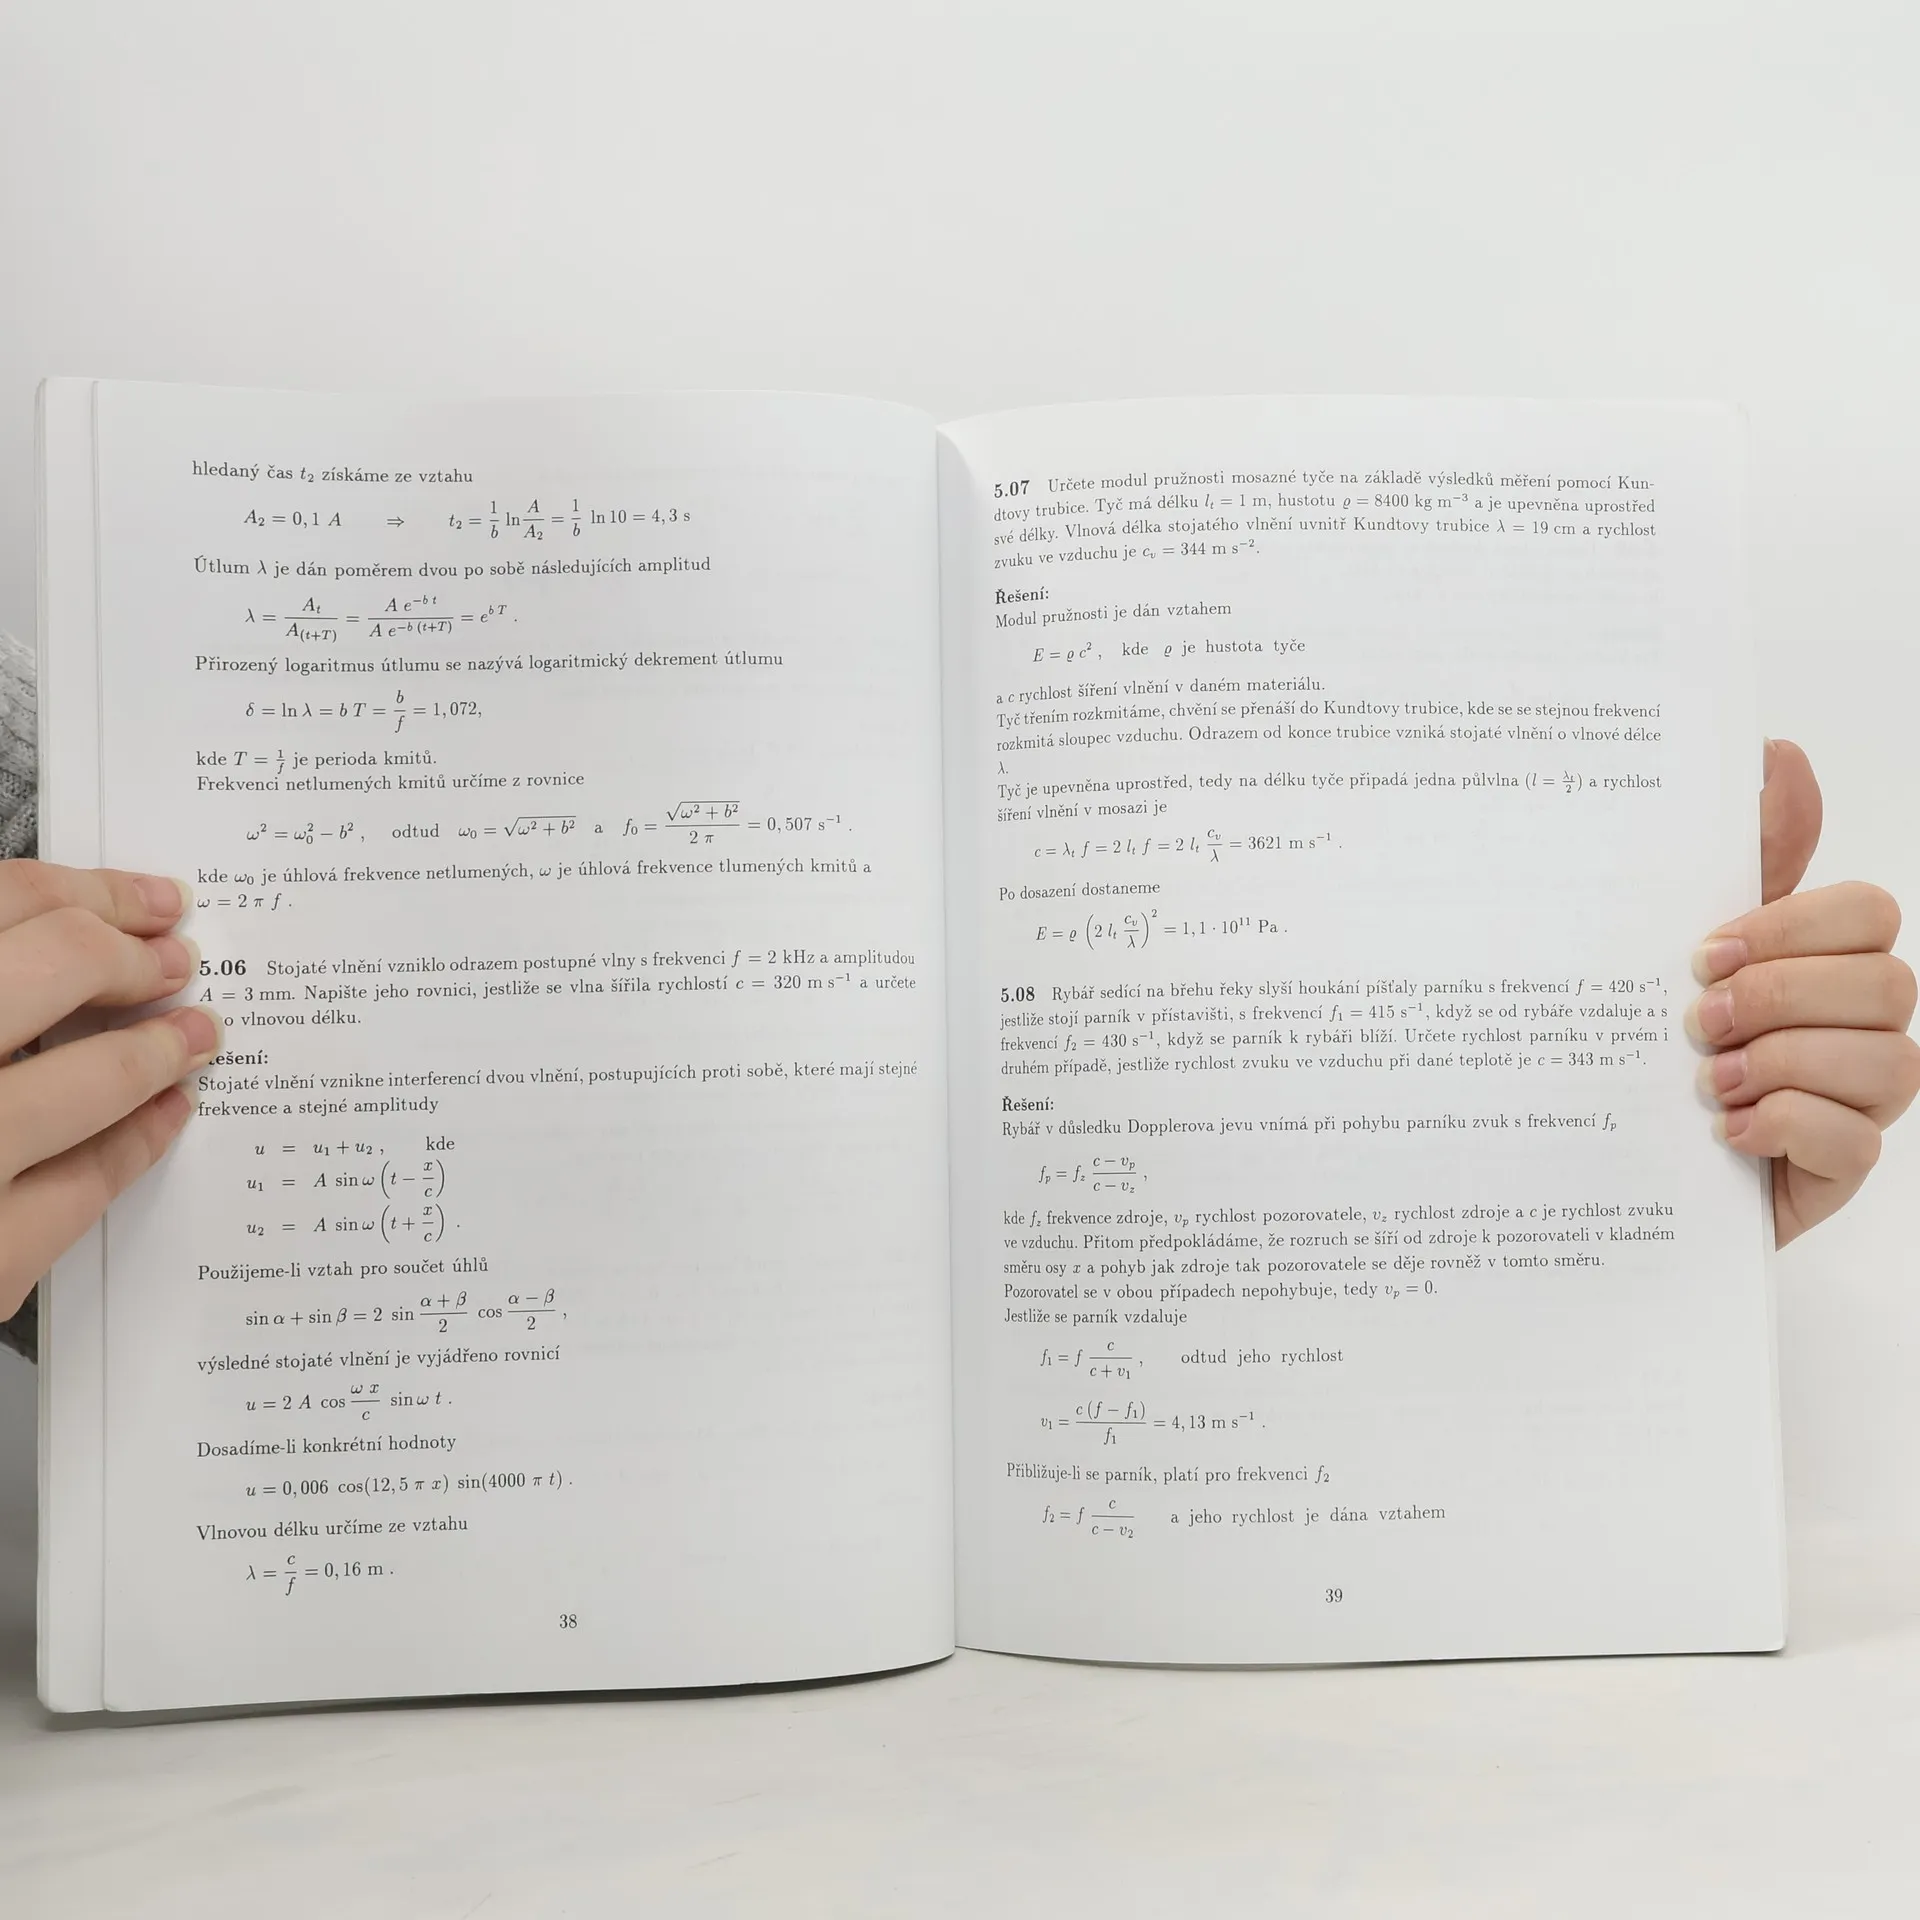 hledaný čas t₂ získáme ze vztahu
A₂ = 0,1 A ⇒ t₂ = \frac{1}{b} ln \frac{A}{A₂} = \frac{1}{b} ln 10 = 4,3 s
Útlum λ je dán poměrem dvou po sobě následujících amplitud
λ = \frac{A_t}{A_{(t+T)}} = \frac{A e^{-b t}}{A e^{-b (t+T)}} = e^{b T} .
Přirozený logaritmus útlumu se nazývá logaritmický dekrement útlumu
δ = ln λ = b T = \frac{b}{f} = 1,072,
kde T = \frac{1}{f} je perioda kmitů.
Frekvenci netlumených kmitů určíme z rovnice
ω² = ω₀² − b² , odtud ω₀ = \sqrt{ω² + b²} a f₀ = \frac{\sqrt{ω² + b²}}{2 π} = 0,507 s⁻¹ .
kde ω₀ je úhlová frekvence netlumených, ω je úhlová frekvence tlumených kmitů a
ω = 2 π f .
5.06 Stojaté vlnění vzniklo odrazem postupné vlny s frekvencí f = 2 kHz a amplitudou
A = 3 mm. Napište jeho rovnici, jestliže se vlna šířila rychlostí c = 320 m s⁻¹ a určete
o vlnovou délku.
ešení:
Stojaté vlnění vznikne interferencí dvou vlnění, postupujících proti sobě, které mají stejné
frekvence a stejné amplitudy
u = u₁ + u₂ , kde
u₁ = A sin ω (t − \frac{x}{c})
u₂ = A sin ω (t + \frac{x}{c}) .
Použijeme-li vztah pro součet úhlů
sin α + sin β = 2 sin \frac{α + β}{2} cos \frac{α − β}{2} ,
výsledné stojaté vlnění je vyjádřeno rovnicí
u = 2 A cos \frac{ω x}{c} sin ω t .
Dosadíme-li konkrétní hodnoty
u = 0,006 cos(12,5 π x) sin(4000 π t) .
Vlnovou délku určíme ze vztahu
λ = \frac{c}{f} = 0,16 m .
38
5.07 Určete modul pružnosti mosazné tyče na základě výsledků měření pomocí Kun-
dtovy trubice. Tyč má délku l_t = 1 m, hustotu ϱ = 8400 kg m⁻³ a je upevněna uprostřed
své délky. Vlnová délka stojatého vlnění uvnitř Kundtovy trubice λ = 19 cm a rychlost
zvuku ve vzduchu je c_v = 344 m s⁻².
Řešení:
Modul pružnosti je dán vztahem
E = ϱ c² , kde ϱ je hustota tyče
a c rychlost šíření vlnění v daném materiálu.
Tyč třením rozkmitáme, chvění se přenáší do Kundtovy trubice, kde se se stejnou frekvencí
rozkmitá sloupec vzduchu. Odrazem od konce trubice vzniká stojaté vlnění o vlnové délce
λ.
Tyč je upevněna uprostřed, tedy na délku tyče připadá jedna půlvlna (l = \frac{λ_t}{2}) a rychlost
šíření vlnění v mosazi je
c = λ_t f = 2 l_t f = 2 l_t \frac{c_v}{λ} = 3621 m s⁻¹ .
Po dosazení dostaneme
E = ϱ (2 l_t \frac{c_v}{λ})² = 1,1 · 10¹¹ Pa .
5.08 Rybář sedící na břehu řeky slyší houkání píšťaly parníku s frekvencí f = 420 s⁻¹,
jestliže stojí parník v přístavišti, s frekvencí f₁ = 415 s⁻¹, když se od rybáře vzdaluje a s
frekvencí f₂ = 430 s⁻¹, když se parník k rybáři blíží. Určete rychlost parníku v prvém i
druhém případě, jestliže rychlost zvuku ve vzduchu při dané teplotě je c = 343 m s⁻¹.
Řešení:
Rybář v důsledku Dopplerova jevu vnímá při pohybu parníku zvuk s frekvencí f_p
f_p = f_z \frac{c − v_p}{c − v_z} ,
kde f_z frekvence zdroje, v_p rychlost pozorovatele, v_z rychlost zdroje a c je rychlost zvuku
ve vzduchu. Přitom předpokládáme, že rozruch se šíří od zdroje k pozorovateli v kladném
směru osy x a pohyb jak zdroje tak pozorovatele se děje rovněž v tomto směru.
Pozorovatel se v obou případech nepohybuje, tedy v_p = 0.
Jestliže se parník vzdaluje
f₁ = f \frac{c}{c + v₁} , odtud jeho rychlost
v₁ = \frac{c (f − f₁)}{f₁} = 4,13 m s⁻¹ .
Přibližuje-li se parník, platí pro frekvenci f₂
f₂ = f \frac{c}{c − v₂} a jeho rychlost je dána vztahem
39